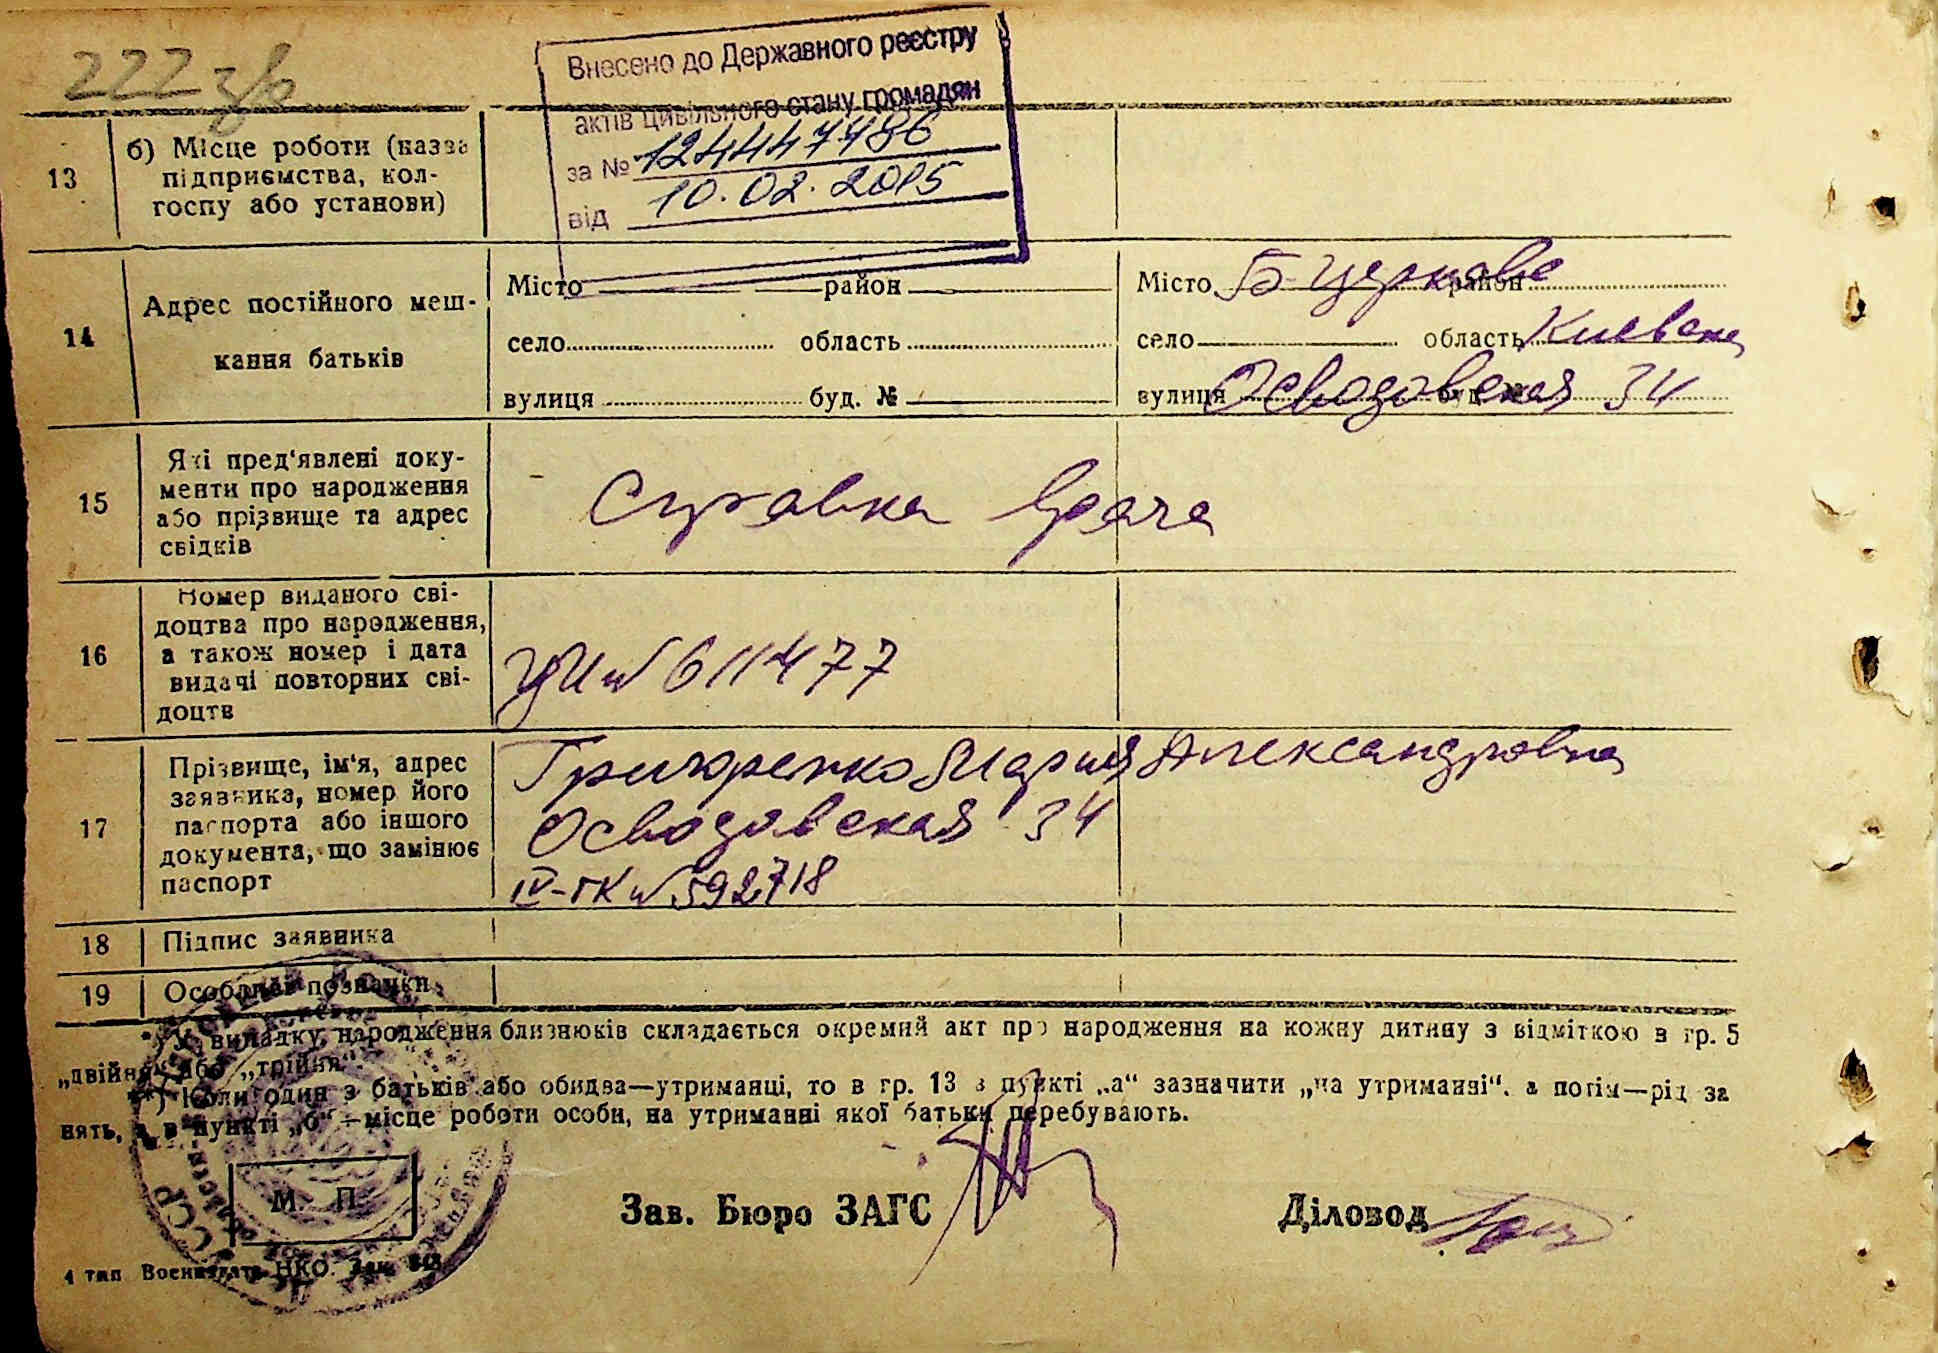 222 зв
Внесено до Державного реєстру
актів цивільного стану громадян
за № 124447486
від 10.02.2015
13
б) Місце роботи (назва
підприємства, кол-
госпу або установи)
14
Адрес постійного меш-
кання батьків
Місто район
село область
вулиця буд. №
Місто Б-Церковь район
село область Киевская
вулиця Осводовская буд. № 34
15
Які пред'явлені доку-
менти про народження
або прізвище та адрес
свідків
Справка врача
16
Номер виданого сві-
доцтва про народження,
а також номер і дата
видачі повторних сві-
доцтв
№ 611477
17
Прізвище, ім'я, адрес
заявника, номер його
паспорта або іншого
документа, що замінює
паспорт
Григоренко Мария Александровна
Осводовская 34
IV-ГК № 592718
18 Підпис заявника
19 Особливі позначки
*) У випадку народження близнюків складається окремий акт про народження на кожну дитину з відміткою в гр. 5
„двійня“ або „трійня“.
**) Коли один з батьків або обидва—утриманці, то в гр. 13 в пункті „а“ зазначити „на утриманні“, а потім—рід за
нять, а в пункті „б“—місце роботи особи, на утриманні якої батьки перебувають.
М. П.
Зав. Бюро ЗАГС
Діловод
4 тип Воениздата НКО. Зак.